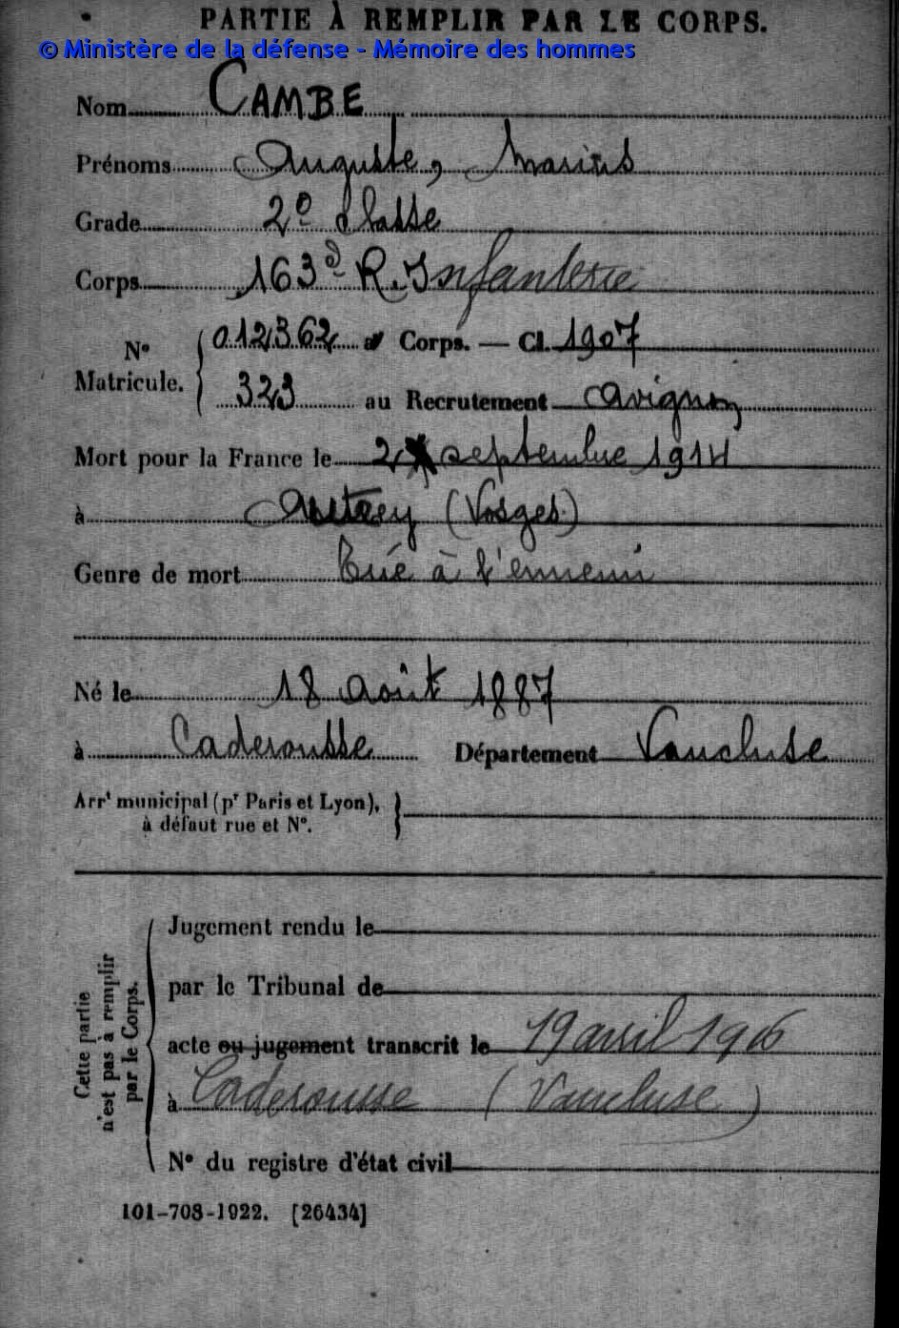 PARTIE À REMPLIR PAR LE CORPS.
© Ministère de la défense - Mémoire des hommes
Nom CAMBE
Prénoms Auguste, Marius
Grade 2e Classe
Corps 163e R. Infanterie
No Matricule. 012362 au Corps. — Cl. 1907
323 au Recrutement Avignon
Mort pour la France le septembre 1914
à Autrey (Vosges)
Genre de mort Tué à l'ennemi
Né le 18 août 1887
à Caderousse Département Vaucluse
Arrt municipal (pr Paris et Lyon), à défaut rue et No.
Cette partie n'est pas à remplir par le Corps.
Jugement rendu le
par le Tribunal de
acte ou jugement transcrit le 19 avril 1916
à Caderousse (Vaucluse)
No du registre d'état civil
101-708-1922. [26434]